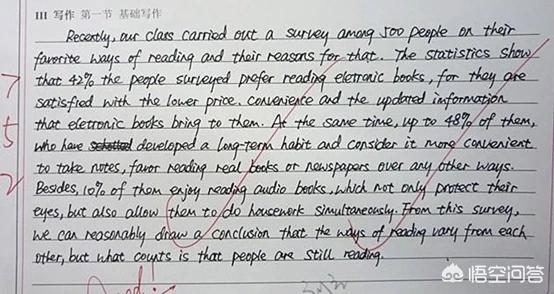 III 写作 第一节 基础写作
Recently, our class carried out a survey among 500 people on their
favorite ways of reading and their reasons for that. The statistics show
that 42% the people surveyed prefer reading eletronic books, for they are
satisfied with the lower price. convenience and the updated information
that eletronic books bring to them. At the same time, up to 48% of them,
who have developed a long-term habit and consider it more convenient
to take notes, favor reading real books or newspapers over any other ways.
Besides, 10% of them enjoy reading audio books, which not only protect their
eyes, but also allow them to do housework simultaneously. From this survey,
we can reasonably draw a conclusion that the ways of reading vary from each
other, but what counts is that people are still reading.
7
5
2
Good!
悟空问答